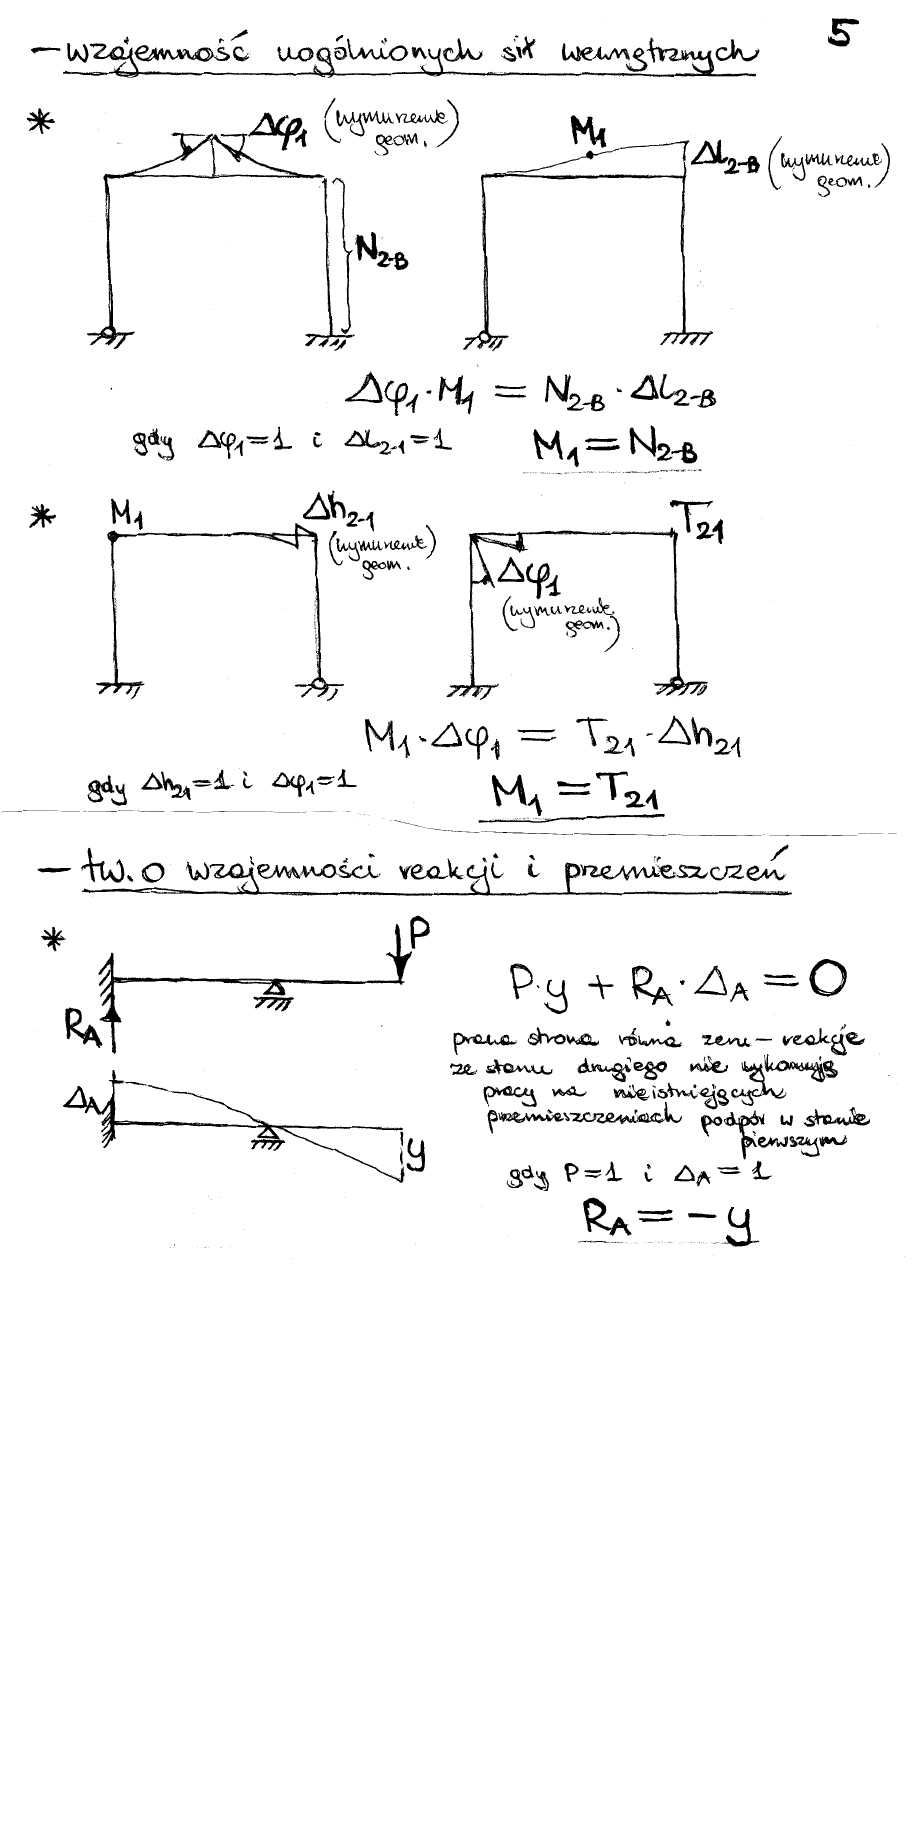 5
— wzajemność uogólnionych sił wewnętrznych
*
Δφ₁ (wymuszenie
geom.)
N₂₋B
M₁
ΔL₂₋B (wymuszenie
geom.)
Δφ₁·M₁ = N₂₋B·ΔL₂₋B
gdy Δφ₁=1 i ΔL₂₋₁=1 M₁=N₂₋B
*
M₁
Δh₂₋₁
(wymuszenie
geom.)
T₂₁
Δφ₁
(wymuszenie
geom.)
M₁·Δφ₁ = T₂₁·Δh₂₁
gdy Δh₂₁=1 i Δφ₁=1 M₁=T₂₁
— tw. o wzajemności reakcji i przemieszczeń
*
P
RA
ΔA
y
P·y + RA·ΔA = 0
prawa strona równa zeru – reakcje
ze stanu drugiego nie wykonują
pracy na nieistniejących
przemieszczeniach podpór w stanie
pierwszym
gdy P=1 i ΔA=1
RA = -y